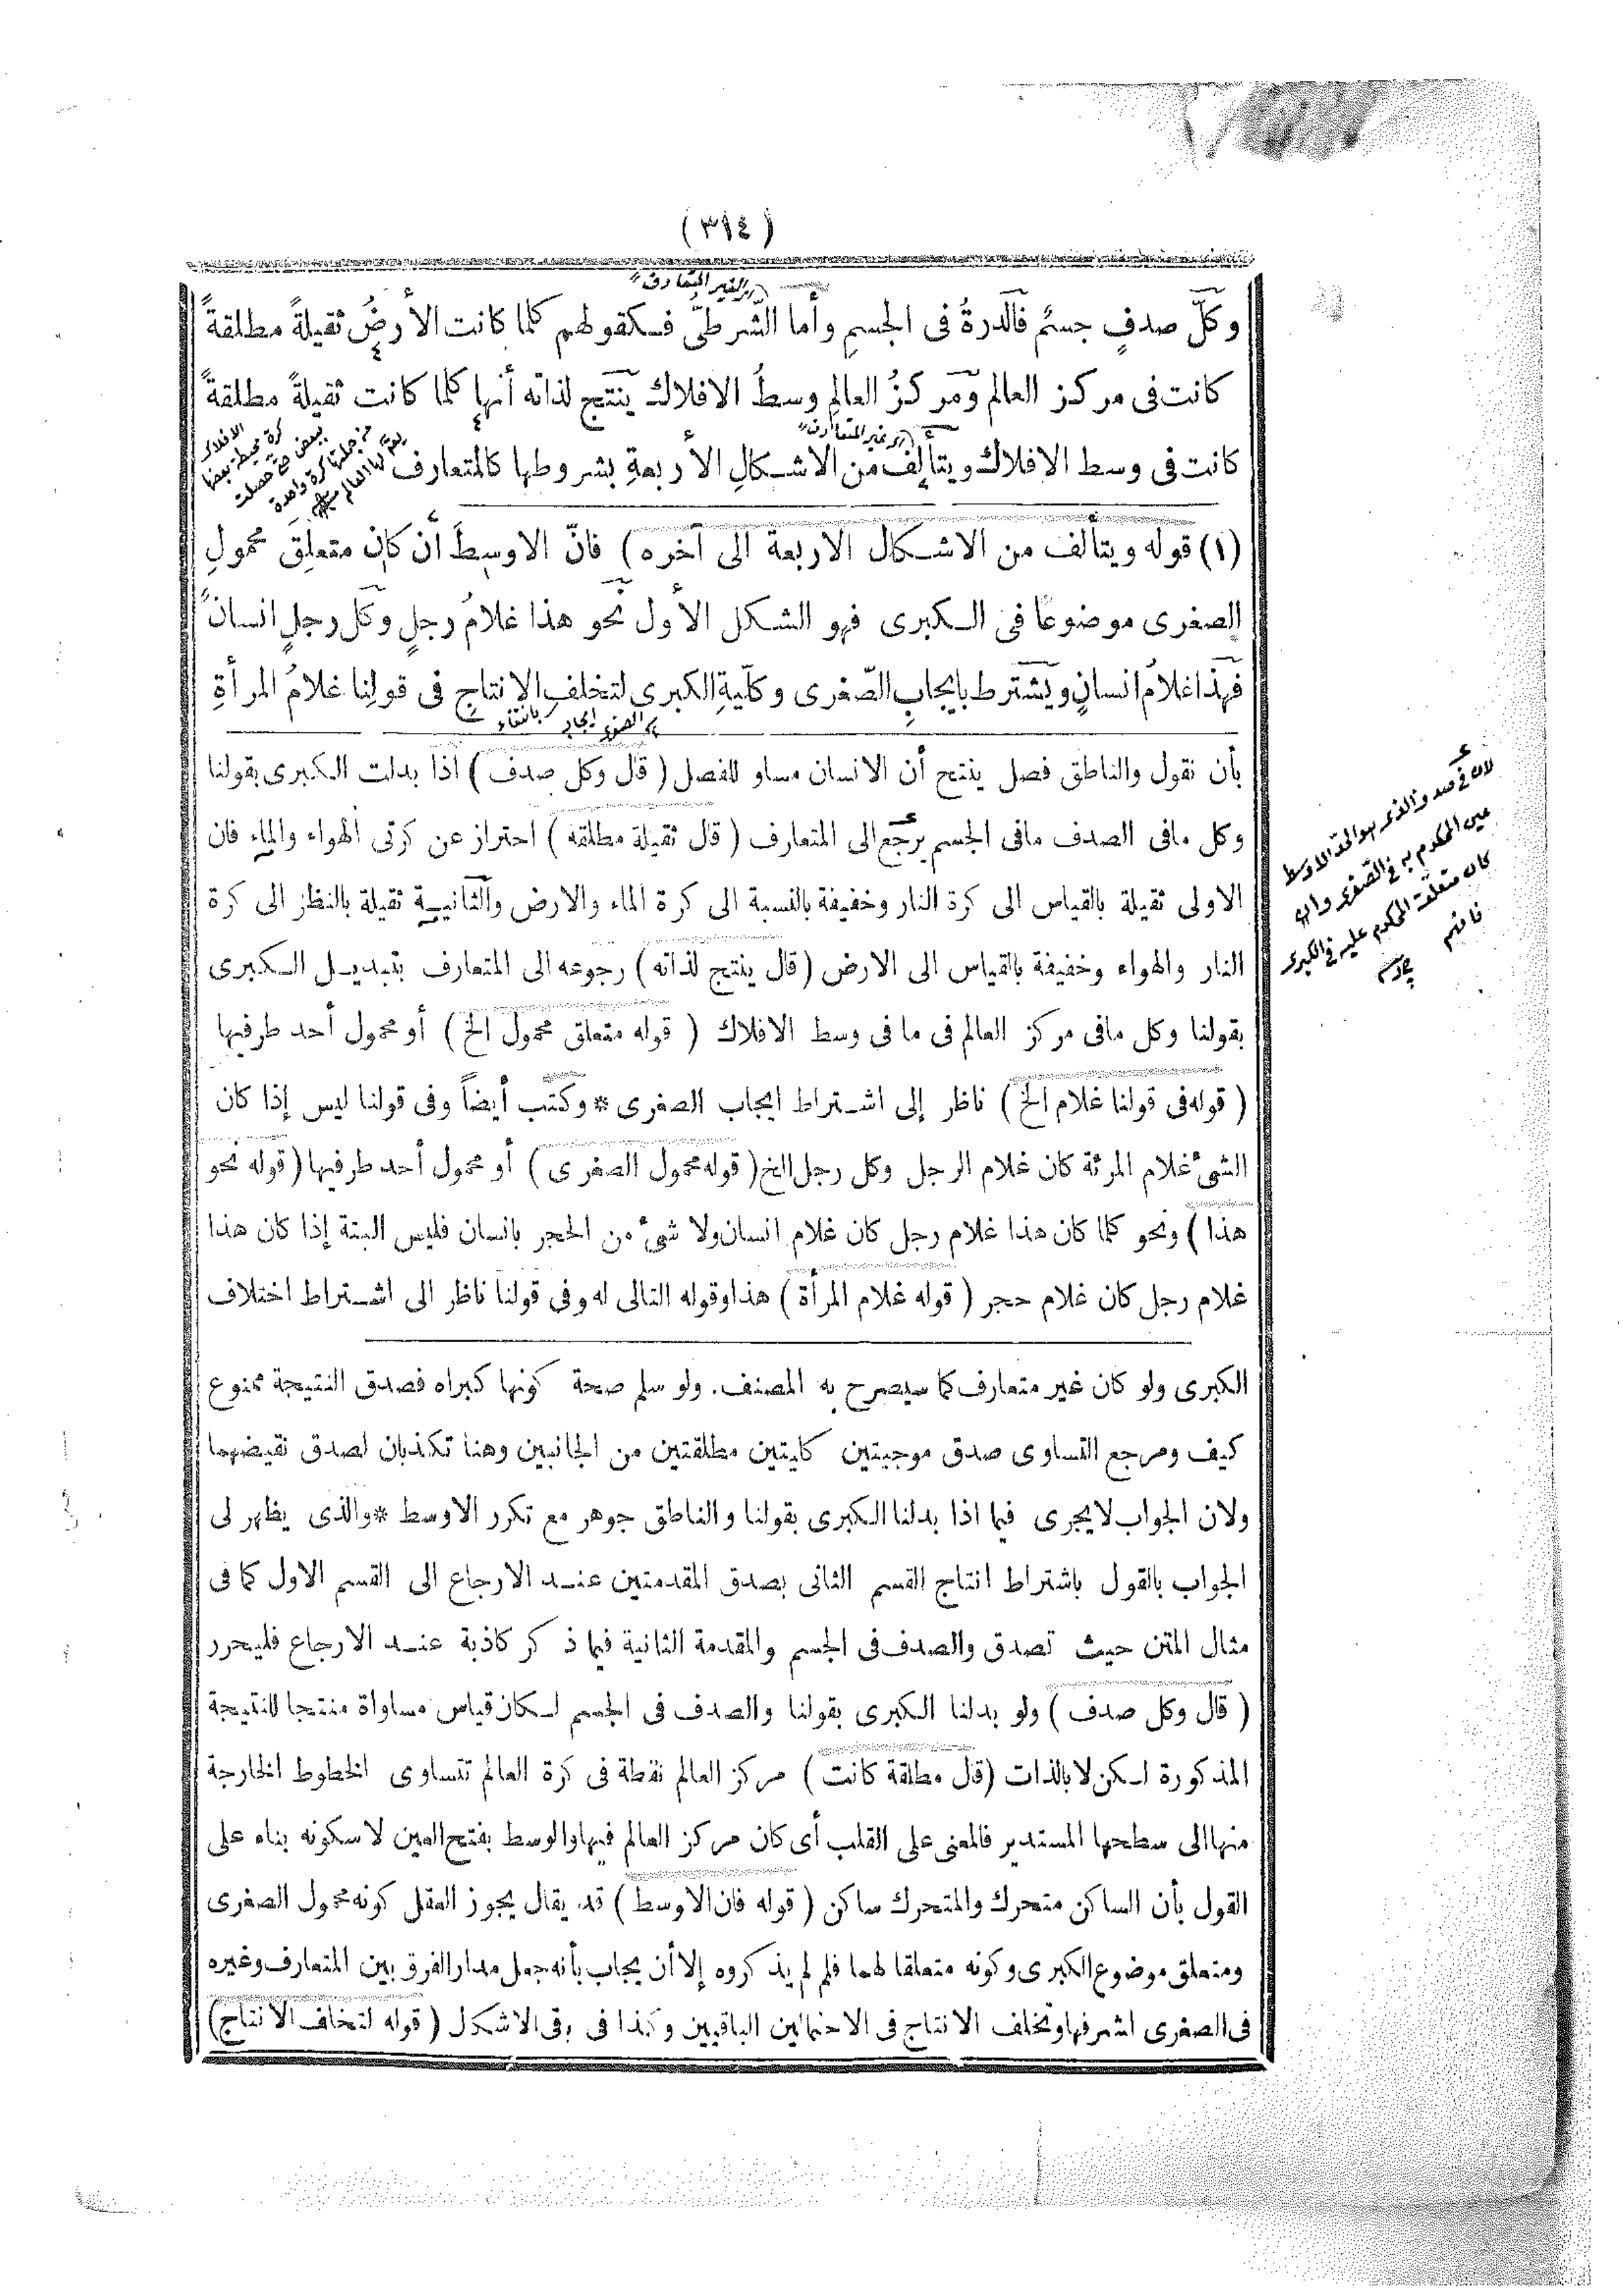 (٣١٤)
الغير المتعارف
وكلّ صدفٍ جسمٌ فالدرةُ فى الجسمِ وأما الشّرطىّ فكقولهم كلما كانت الأرضُ ثقيلةً مطلقةً
كانت فى مركز العالم ومركزُ العالمِ وسطُ الافلاك ينتج لذاته أنها كلما كانت ثقيلةً مطلقةً
غير المتعارف
كانت فى وسط الافلاك ويتألف من الاشكالِ الأربعةِ بشروطها كالمتعارف
(١) قوله ويتألف من الاشكال الاربعة الى آخره) فانّ الاوسطَ أن كان متعلِقَ محمولِ
الصغرى موضوعًا فى الكبرى فهو الشكل الأول نحو هذا غلامُ رجلٍ وكل رجلٍ انسانٌ
فهذا غلامُ انسانٍ ويشترط بايجابِ الصّغرى وكلّيةِ الكبرى لتخلفِ الانتاجِ فى قولِنا غلامُ المرأةِ
بانتفاء ايجاب الصغرى
بأن نقول والناطق فصل ينتج أن الانسان مساو للفصل (قال وكل صدف) اذا بدلت الكبرى بقولنا
وكل مافى الصدف مافى الجسم يرجع الى المتعارف (قال ثقيلة مطلقة) احتراز عن كرتى الهواء والماء فان
الاولى ثقيلة بالقياس الى كرة النار وخفيفة بالنسبة الى كرة الماء والارض والثانيــة ثقيلة بالنظر الى كرة
النار والهواء وخفيفة بالقياس الى الارض (قال ينتج لذاته) رجوعه الى المتعارف بتبديــل الكبرى
بقولنا وكل مافى مركز العالم فى ما فى وسط الافلاك (قوله متعلق محمول الخ) أو محمول أحد طرفيها
(قوله فى قولنا غلام الخ) ناظر إلى اشــتراط ايجاب الصغرى * وكتب أيضاً وفى قولنا ليس إذا كان
الشئ غلام المرئة كان غلام الرجل وكل رجل الخ (قوله محمول الصغرى) أو محمول أحد طرفيها (قوله نحو
هذا) ونحو كلما كان هذا غلام رجل كان غلام انسان ولا شئ من الحجر بانسان فليس البتة إذا كان هذا
غلام رجل كان غلام حجر (قوله غلام المرأة) هذا وقوله التالى له وفى قولنا ناظر الى اشــتراط اختلاف
الكبرى ولو كان غير متعارف كما سيصرح به المصنف. ولو سلم صحة كونها كبراه فصدق النتيجة ممنوع
كيف ومرجع التساوى صدق موجبتين كليتين مطلقتين من الجانبين وهنا تكذبان لصدق نقيضهما
ولان الجواب لا يجرى فيما اذا بدلنا الكبرى بقولنا والناطق جوهر مع تكرر الاوسط * والذى يظهر لى
الجواب بالقول باشتراط انتاج القسم الثانى بصدق المقدمتين عنــد الارجاع الى القسم الاول كما فى
مثال المتن حيث تصدق والصدف فى الجسم والمقدمة الثانية فيما ذكر كاذبة عنــد الارجاع فليحرر
(قال وكل صدف) ولو بدلنا الكبرى بقولنا والصدف فى الجسم لــكان قياس مساواة منتجا للنتيجة
المذكورة لــكن لا بالذات (قال مطلقة كانت) مركز العالم نقطة فى كرة العالم تتساوى الخطوط الخارجة
منها الى سطحها المستدير فالمعنى على القلب أى كان مركز العالم فيها والوسط بفتح العين لا سكونه بناء على
القول بأن الساكن متحرك والمتحرك ساكن (قوله فان الاوسط) قد يقال يجوز العقل كونه محمول الصغرى
ومتعلق موضوع الكبرى وكونه متعلقا لهما فلم لم يذكروه إلا أن يجاب بأنه جعل مدار الفرق بين المتعارف وغيره
فى الصغرى اشرفها وتخلف الانتاج فى الاحتمالين الباقيين وكذا فى بقى الاشكال (قوله لتخلف الانتاج)